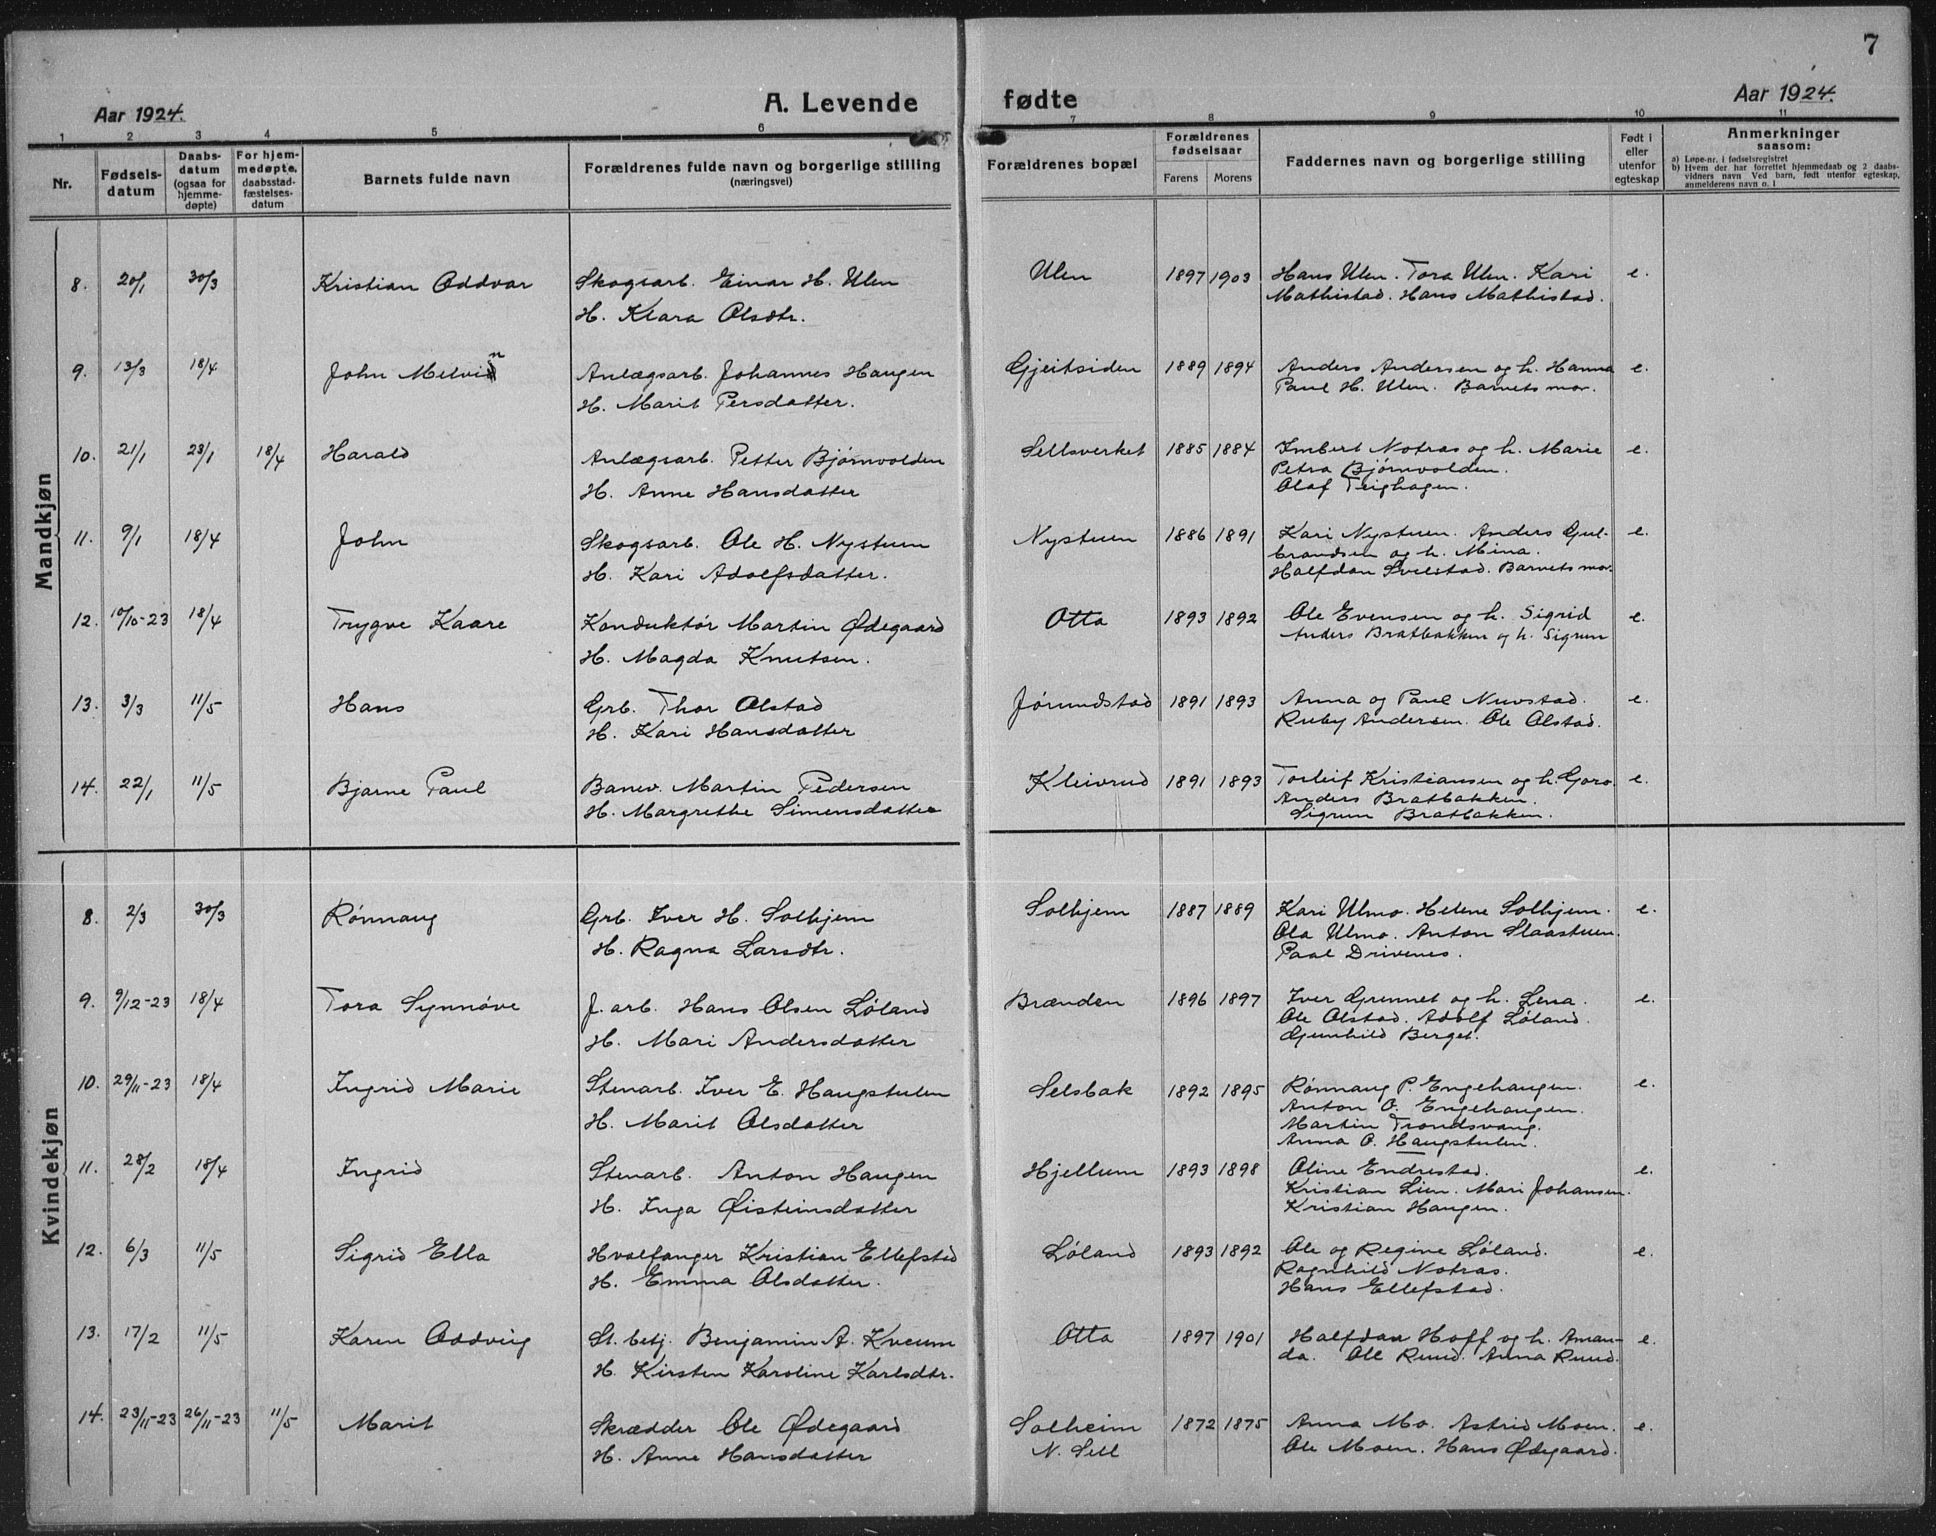 7
Aar 1924. A. Levende fødte Aar 1924.
1 2 3 4 5 6 7 8 9 10 11
Nr.
Fødsels-
datum
Daabs-
datum
(ogsaa for
hjemme-
døpte)
For hjem-
medøpte,
daabsstad-
fæstelses-
datum
Barnets fulde navn
Forældrenes fulde navn og borgerlige stilling
(næringsvei)
Forældrenes bopæl
Forældrenes
fødselsaar
Farens Morens
Faddernes navn og borgerlige stilling
Født i
eller
utenfor
egteskap
Anmerkninger
saasom:
a) Løpe-nr. i fødselsregistret
b) Hvem der har forrettet hjemmedaab og 2 daabs-
vidners navn Ved barn, født utenfor egteskap,
anmelderens navn o. l
Mandkjøn
8. 20/1 30/3 Kristian Oddvar Skogsarb. Einar H. Ulen Ulen 1897 1903 Hans Ulen. Tora Ulen. Kari e.
H. Klara Olsdtr. Mathistad. Hans Mathistad.
9. 13/3 18/4 John Melvin Anlægsarb. Johannes Haugen Gjeitsiden 1889 1894 Anders Andersen og h. Hanna e.
H. Marit Persdatter. Paul H. Ulen. Barnets mor.
10. 21/1 23/1 18/4 Harald Anlægsarb. Petter Bjørnvolden Sellsverket 1885 1884 Imbert Notras og h. Marie e.
H. Anne Hansdatter Petra Bjørnvolden.
Olaf Teighagen.
11. 9/1 18/4 John Skogsarb. Ole H. Nystuen Nystuen 1886 1891 Kari Nystuen. Anders Gul- e.
H. Kari Adolfsdatter. brandsen og h. Mina.
Halfdan Svelstad. Barnets mor.
12. 10/10-23 18/4 Trygve Kaare Konduktør Martin Ødegaard Otta 1893 1892 Ole Evensen og h. Sigrid e.
H. Magda Knutsen. Anders Bratbakken og h. Sigrun
13. 3/3 11/5 Hans Grb. Thor Olstad Jørundstad 1891 1893 Anna og Paul Nuvstad. e.
H. Kari Hansdatter Ruby Andersen. Ole Olstad.
14. 22/1 11/5 Bjarne Paul Banev. Martin Pedersen Kleivrud 1891 1893 Torleif Kristiansen og h. Goro. e.
H. Margrethe Simensdatter Anders Bratbakken.
Sigrun Bratbakken.
Kvindekjøn
8. 2/3 30/3 Rønnaug Grb. Iver H. Solhjem Solhjem 1887 1889 Kari Ulmo. Helene Solhjem. e.
H. Ragna Larsdtr. Ola Ulmo. Anton Slaastuen.
Paal Drivenes.
9. 9/12-23 18/4 Tora Synnøve J. arb. Hans Olsen Løland Brænden 1896 1897 Iver Grunnet og h. Lena. e.
H. Mari Andersdatter Ole Olstad. Adolf Løland.
Gunhild Berget.
10. 29/11-23 18/4 Ingrid Marie Stenarb. Iver E. Haugstulen Selsbak 1892 1895 Rønnaug P. Engehaugen. e.
H. Marit Olsdatter Anton O. Engehaugen.
Martin Trondsvang.
Anna O. Haugstulen.
11. 28/2 18/4 Ingrid Stenarb. Anton Haugen Hjellum 1893 1898 Oline Endrestad. e.
H. Inga Øisteinsdatter Kristian Lien. Mari Johansen.
Kristian Haugen.
12. 6/3 11/5 Sigrid Ella Hvalfanger Kristian Ellefstad Løland 1893 1892 Ole og Regine Løland. e.
H. Emma Olsdatter. Ragnhild Notras.
Hans Ellefstad.
13. 17/2 11/5 Karen Oddveig St. betj. Benjamin A. Kveum Otta 1897 1901 Halfdan Hoff og h. Aman- e.
H. Kirsten Karoline Karlsdtr. da. Ole Ruud. Anna Ruud.
14. 23/11-23 26/11-23 11/5 Marit Skrædder Ole Ødegaard Solheim 1872 1875 Anna Mo. Astrid Moen. e.
H. Anne Hansdatter N. Sell Ole Moen. Hans Ødegaard.